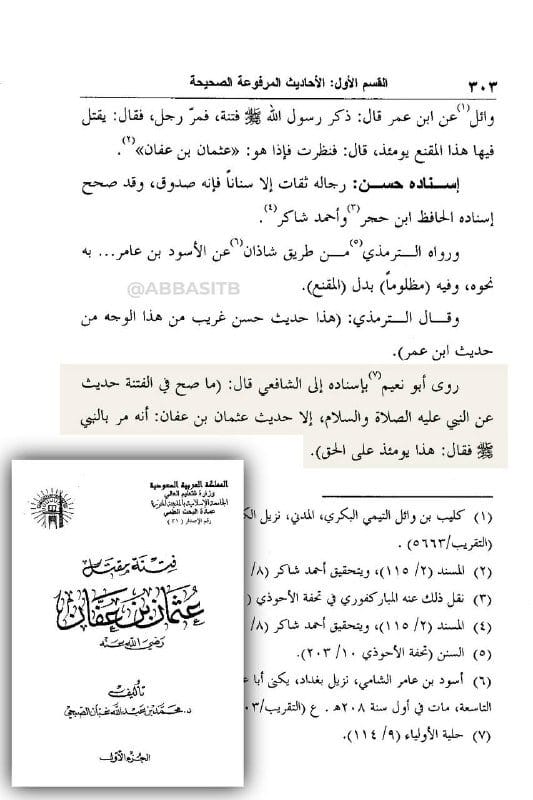 القسم الأول: الأحاديث المرفوعة الصحيحة
٣٠٣
وائل(١) عن ابن عمر قال: ذكر رسول الله ﷺ فتنة، فمرّ رجل، فقال: يقتل
فيها هذا المقنع يومئذ، قال: فنظرت فإذا هو: «عثمان بن عفان»(٢).
إسناده حسن: رجاله ثقات إلا سناناً فإنه صدوق، وقد صحح
إسناده الحافظ ابن حجر(٣) وأحمد شاكر(٤).
ورواه الترمذي(٥) من طريق شاذان(٦) عن الأسود بن عامر... به
نحوه، وفيه (مظلوماً) بدل (المقنع).
@ABBASITB
وقال الترمذي: (هذا حديث حسن غريب من هذا الوجه من
حديث ابن عمر).
روى أبو نعيم(٧) بإسناده إلى الشافعي قال: (ما صح في الفتنة حديث
عن النبي عليه الصلاة والسلام، إلا حديث عثمان بن عفان: أنه مر بالنبي
ﷺ فقال: هذا يومئذ على الحق).
(١) كليب بن وائل التيمي البكري، المدني، نزيل الك
(التقريب/٥٦٦٣).
(٢) المسند (٢/ ١١٥)، وبتحقيق أحمد شاكر (٨/
(٣) نقل ذلك عنه المباركفوري في تحفة الأحوذي (
(٤) المسند (٢/ ١١٥)، وبتحقيق أحمد شاكر (٨/
(٥) السنن (تحفة الأحوذي ١٠/ ٢٠٣).
(٦) أسود بن عامر الشامي، نزيل بغداد، يكنى أبا ع
التاسعة، مات في أول سنة ٢٠٨هـ. ع (التقريب/٥٠٣
(٧) حلية الأولياء (٩/ ١١٤).
المملكة العربية السعودية
وزارة التعليم العالي
الجامعة الإسلامية بالمدينة المنورة
عمادة البحث العلمي
رقم الإصدار (٣١)
فتنة مقتل
عثمان بن عفان
رضي الله عنه
تأليف
د. محمد بن عبد الله غبان الصبحي
الجزء الأول